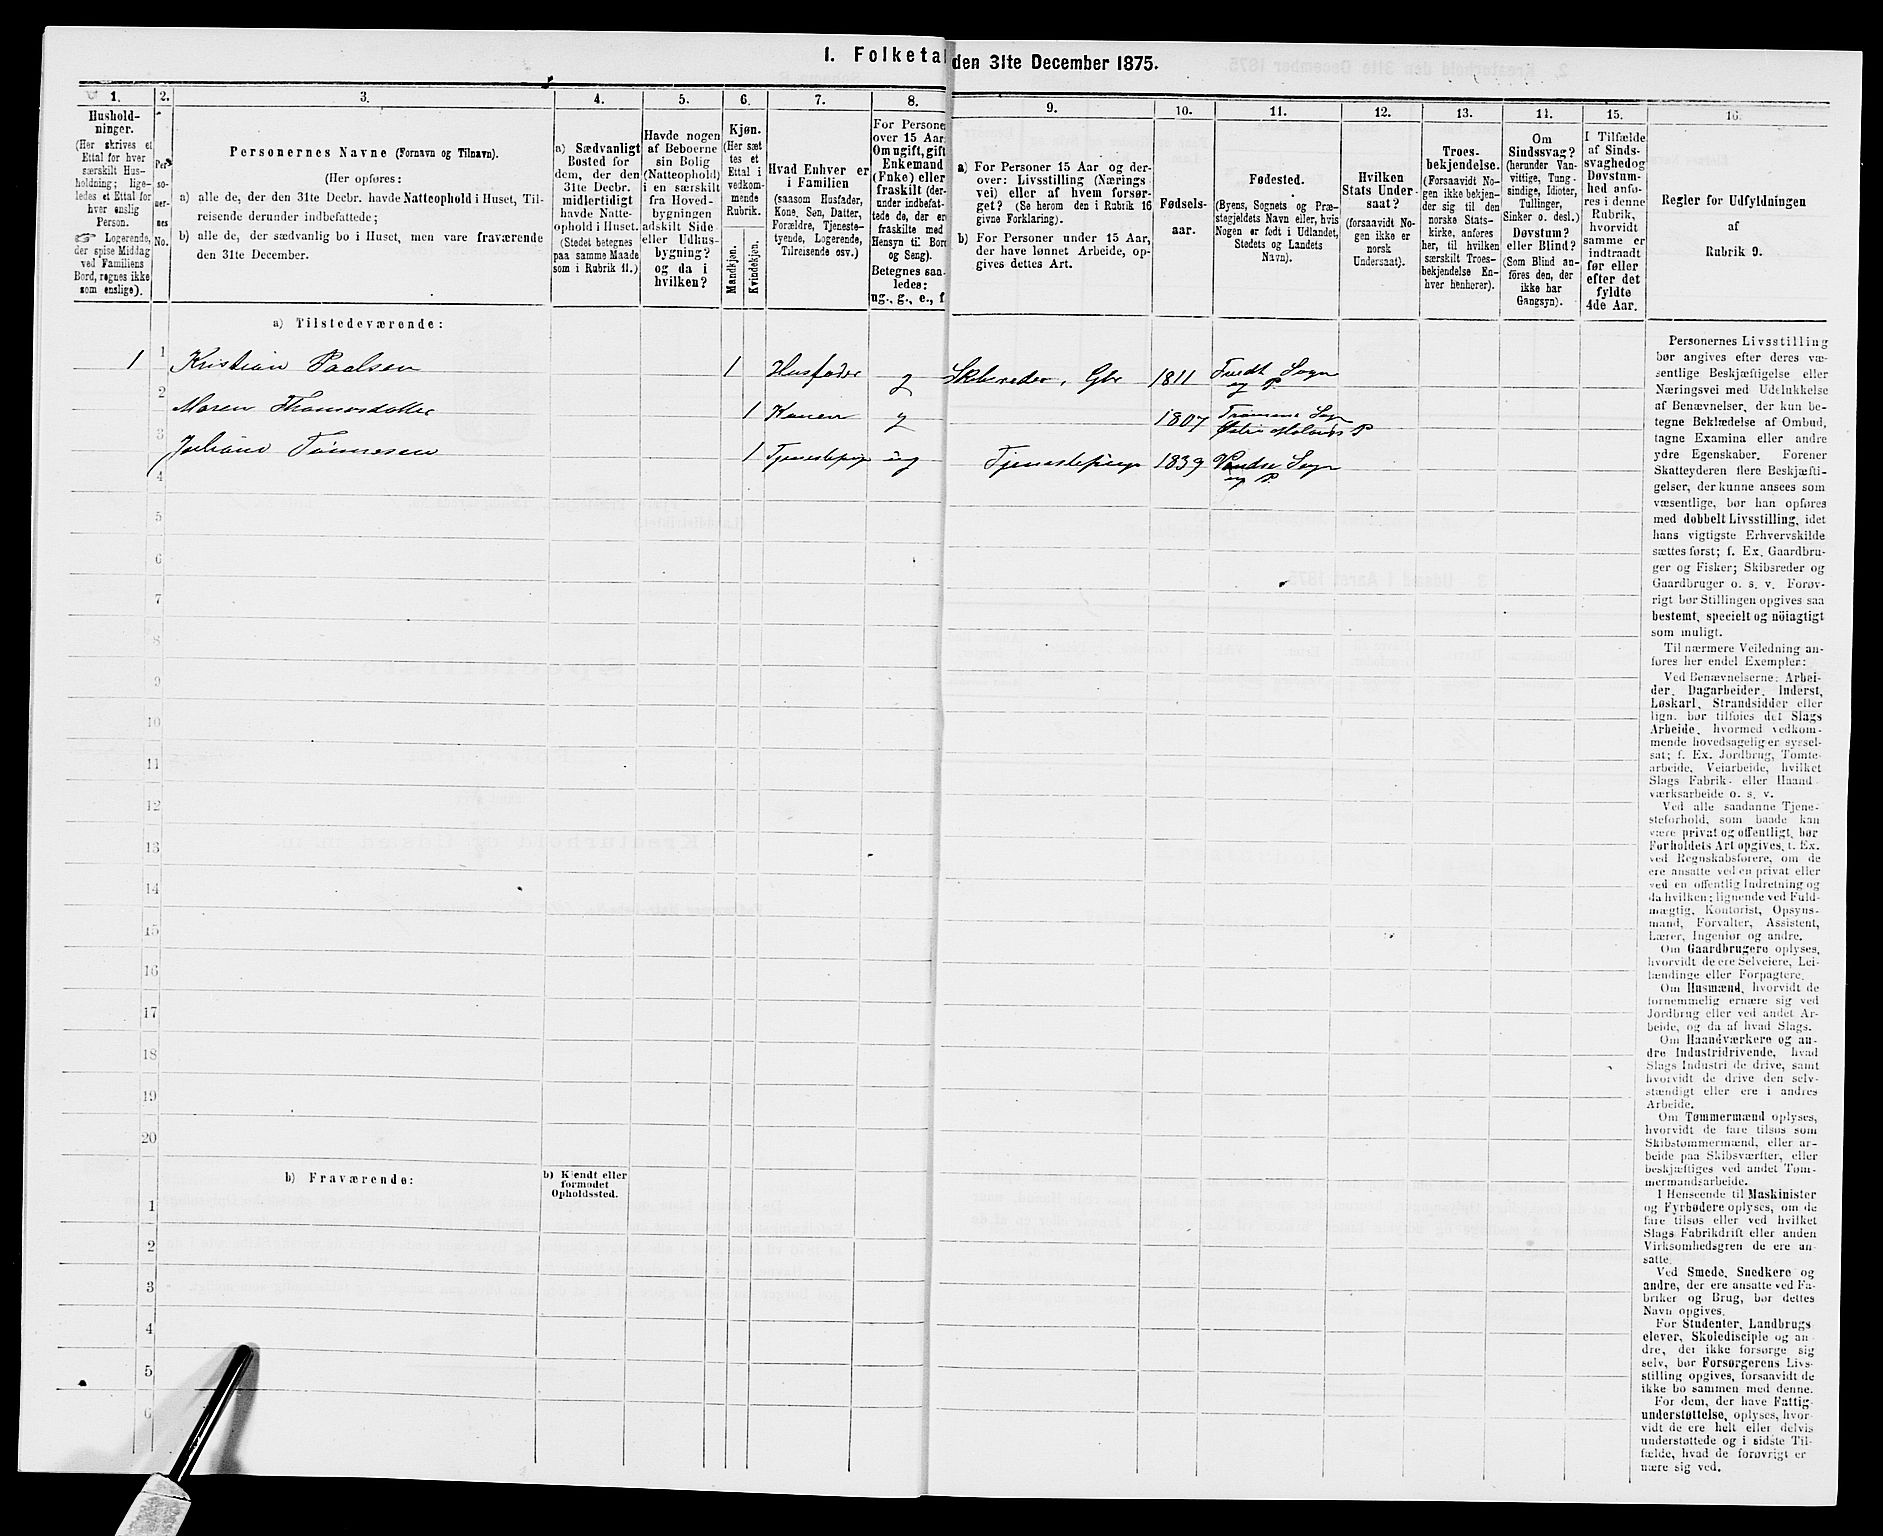 1. Folketal den 31te December 1875.
1. 2. 3. 4. 5. 6. 7. 8. 9. 10. 11. 12. 13. 14. 15. 16.
Hushold-
ninger.
(Her skrives et
Ettal for hver
særskilt Hus-
holdning; lige-
ledes et Ettal for
hver enslig
Person.
☞ Logerende,
der spise Middag
ved Familiens
Bord, regnes ikke
som enslige).
Per
so-
ner-
nes
No.
Personernes Navne (Fornavn og Tilnavn).
(Her opføres:
a) alle de, der den 31te Decbr. havde Natteophold i Huset, Til-
reisende derunder indbefattede;
b) alle de, der sædvanlig bo i Huset, men vare fraværende
den 31te December.
a) Sædvanligt
Bosted for
dem, der den
31te Decbr.
midlertidigt
havde Natte-
ophold i Huset.
(Stedet betegnes
paa samme Maade
som i Rubrik 11.)
Havde nogen
af Beboerne
sin Bolig
(Natteophold)
i en særskilt
fra Hoved-
bygningen
adskilt Side
eller Udhus-
bygning?
og da i
hvilken?
Kjøn.
(Her sæt
tes et
Ettal i
vedkom-
mende
Rubrik.
Mandkjøn.
Kvindekjøn.
Hvad Enhver er
i Familien
(saasom Husfader,
Kone, Søn, Datter,
Forældre, Tjeneste-
tyende, Logerende,
Tilreisende osv.)
For Persone
over 15 Aar
Om ugift, gift
Enkemand
(Fnke) eller
fraskilt (der-
under indbefat-
tede de, der er
fraskilte med
Hensyn til Bord
og Seng).
Betegnes saa-
ledes:
ug., g., e., f
a) For Personer 15 Aar og der-
over: Livsstilling (Nærings
vei) eller af hvem forsør-
get? (Se herom den i Rubrik 16
givne Forklaring).
b) For Personer under 15 Aar,
der have lønnet Arbeide, op-
gives dettes Art.
Fødsels-
aar.
Fødested.
(Byens, Sognets og Præ-
stegjeldets Navn eller, hvis
Nogen er født i Udlandet,
Stedets og Landets
Navn).
Hvilken
Stats Under-
saat?
(forsaavidt No-
gen ikke er
norsk
Undersaat).
Troes-
bekjendelse.
(Forsaavidt No-
gen ikke bekjen-
der sig til den
norske Stats-
kirke, anføres
her, til hvilken
særskilt Troes-
bekjendelse En-
hver henhører).
Om
Sindssvag?
(herunder Van-
vittige, Tung-
sindige, Idioter,
Tullinger,
Sinker o. desl.)
Døvstum?
eller Blind?
(Som Blind an-
føres den, der
ikke har
Gangsyn).
I Tilfælde
af Sinds-
svaghed og
Døvstum-
hed anfø-
res i denne
Rubrik,
hvorvidt
samme er
indtraadt
før eller
efter det
fyldte
4de Aar.
Regler for Udfyldningen
af
Rubrik 9.
a) Tilstedeværende:
1 1 Kristian Paalsen 1 Husfader g Skibsreder, Gbr 1811 Sogn
og P.
2 Maren Thomasdatter 1 Konen g 1807 Tromøens Sogn
P
3 Juliane Tønnesen 1 Tjenestepige ug Tjenestepige 1839 Sogn
og P.
4
5
6
7
8
9
10
11
12
13
14
15
16
17
18
19
20
b) Fraværende:
b) Kjendt eller
formodet
Opholdssted.
1
2
3
4
5
6
Personernes Livsstilling
bør angives efter deres væ-
sentlige Beskjæftigelse eller
Næringsvei med Udelukkelse
af Benævnelser, der kun be-
tegne Beklædelse af Ombud,
tagne Examina eller andre
ydre Egenskaber. Forener
Skatteyderen flere Beskjæfti-
gelser, der kunne ansees som
væsentlige, bør han opføres
med dobbelt Livsstilling, idet
hans vigtigste Erhvervskilde
sættes først; f. Ex. Gaardbru-
ger og Fisker; Skibsreder og
Gaardbruger o. s. v. Forøv-
rigt bør Stillingen opgives saa
bestemt, specielt og nöiagtigt
som muligt.
Til nærmere Veiledning an-
føres her endel Exempler:
Ved Benævnelserne: Arbei-
der, Dagarbeider, Inderst,
Løskarl, Strandsidder eller
lign. bør tilføies det Slags
Arbeide, hvormed vedkom-
mende hovedsagelig er syssel-
sat; f. Ex. Jordbrug, Tømte-
arbeide, Veiarbeide, hvilket
Slags Fabrik- eller Haand-
værksarbeide o. s. v.
Ved alle saadanne Tjene-
steforhold, som baade kan
være privat og offentligt, bør
Forholdets Art opgives, f. Ex.
ved Regnskabsførere, om de
ere ansatte ved en privat eller
ved en offentlig Indretning og
da hvilken; lignende ved Fuld-
mægtig, Kontorist, Opsyns-
mand, Forvalter, Assistent,
Lærer, Ingeniør og andre.
Om Gaardbrugere oplyses,
hvorvidt de ere Selveiere, Lei-
lændinge eller Forpagtere.
Om Husmænd, hvorvidt de
fornemmelig ernære sig ved
Jordbrug eller ved andet Ar-
beide, og da af hvad Slags.
Om Haandværkere og an-
dre Industridrivende, hvad
Slags Industri de drive, samt
hvorvidt de drive den selv-
stændigt eller ere i andres
Arbeide.
Om Tømmermænd oplyses,
hvorvidt de fare tilsøs som
Skibstømmermænd, eller ar-
beide paa Skibsværfter, eller
beskjæftiges ved andet Tøm-
mermandsarbeide.
I Henseende til Maskinister
og Fyrbødere oplyses, om de
fare tilsøs eller ved hvilket
Slags Fabrikdrift eller anden
Virksomhedsgren de ere an-
satte.
Ved Smede, Snedkere og
andre, der ere ansatte ved Fa-
briker og Brug, bør dettes
Navn opgives.
For Studenter, Landbrugs
elever, Skoledisciple og an-
dre, der ikke forsørge sig
selv, bør Forsørgerens Livs-
stilling opgives, forsaavidt de
ikke bo sammen med denne.
For dem, der have Fattig-
understøttelse, oplyses, hvor-
vidt de ere helt eller delvis
understøttede og i sidste Til-
fælde, hvad de forøvrigt er
nære sig ved.